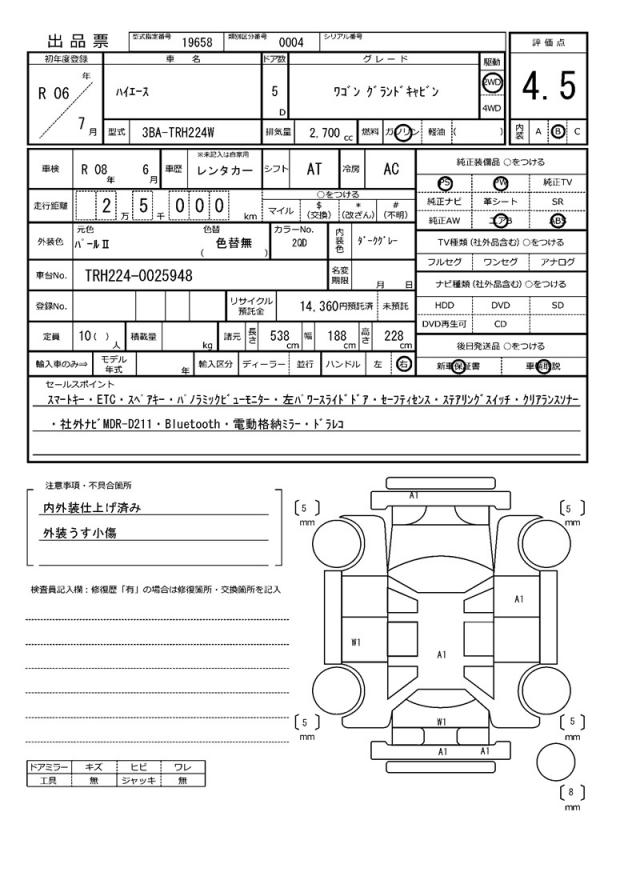 出品票
型式指定番号 19658 類別区分番号 0004 シリアル番号
評価点
4.5
内装 A B C
初年度登録 車名 ドア数 グレード 駆動
R 06 年 7 月
ハイエース 5 D ワゴン グランドキャビン 2WD 4WD
型式 3BA-TRH224W 排気量 2,700 cc 燃料 ガソリン 軽油 ( )
車検 R 08 年 6 月 車歴 ※未記入は自家用 レンタカー シフト AT 冷房 AC
走行距離 2 万 5 千 0 0 0 km ○をつける マイル $ (交換) * (改ざん) # (不明)
外装色 元色 パールⅡ 色替 ( 色替無 ) カラーNo. 2QD 内装色 ダークグレー
車台No. TRH224-0025948 名変期限 月 日
登録No. リサイクル預託金 14,360円預託済 未預託
定員 10( ) 人 積載量 kg 諸元 長さ 538 cm 幅 188 cm 高さ 228 cm
輸入車のみ⇒ モデル年式 年 輸入区分 ディーラー 並行 ハンドル 左 右
純正装備品 ○をつける
PS PW 純正TV
純正ナビ 革シート SR
純正AW エアB ABS
TV種類(社外品含む)○をつける
フルセグ ワンセグ アナログ
ナビ種類(社外品含む)○をつける
HDD DVD SD
DVD再生可 CD
後日発送品 ○をつける
新車保証書 車輌取説
セールスポイント
スマートキー・ETC・スペアキー・パノラミックビューモニター・左パワースライドドア・セーフティセンス・ステアリングスイッチ・クリアランスソナー
・社外ナビMDR-D211・Bluetooth・電動格納ミラー・ドラレコ
注意事項・不具合箇所
内外装仕上げ済み
外装うす小傷
検査員記入欄:修復歴「有」の場合は修復箇所・交換箇所を記入
ドアミラー キズ ヒビ ワレ
工具 無 ジャッキ 無
A1
[5] mm
[5] mm
A1
W1
A1
W1
[5] mm
[5] mm
A1 A1
[8] mm